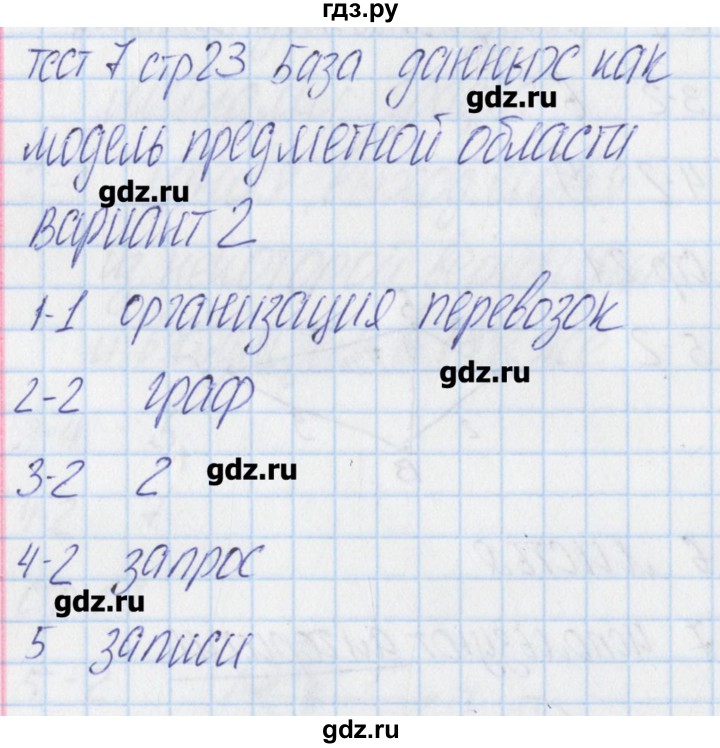 гдз.ру
тест 7 стр 23 База данных как
gdz.ru
модель предметной области
gdz.ru
вариант 2
1-1 организация перевозок
gdz.ru
2-2 граф
3-2 2
gdz.ru
4-2 запрос
gdz.ru
5 записи
gdz.ru